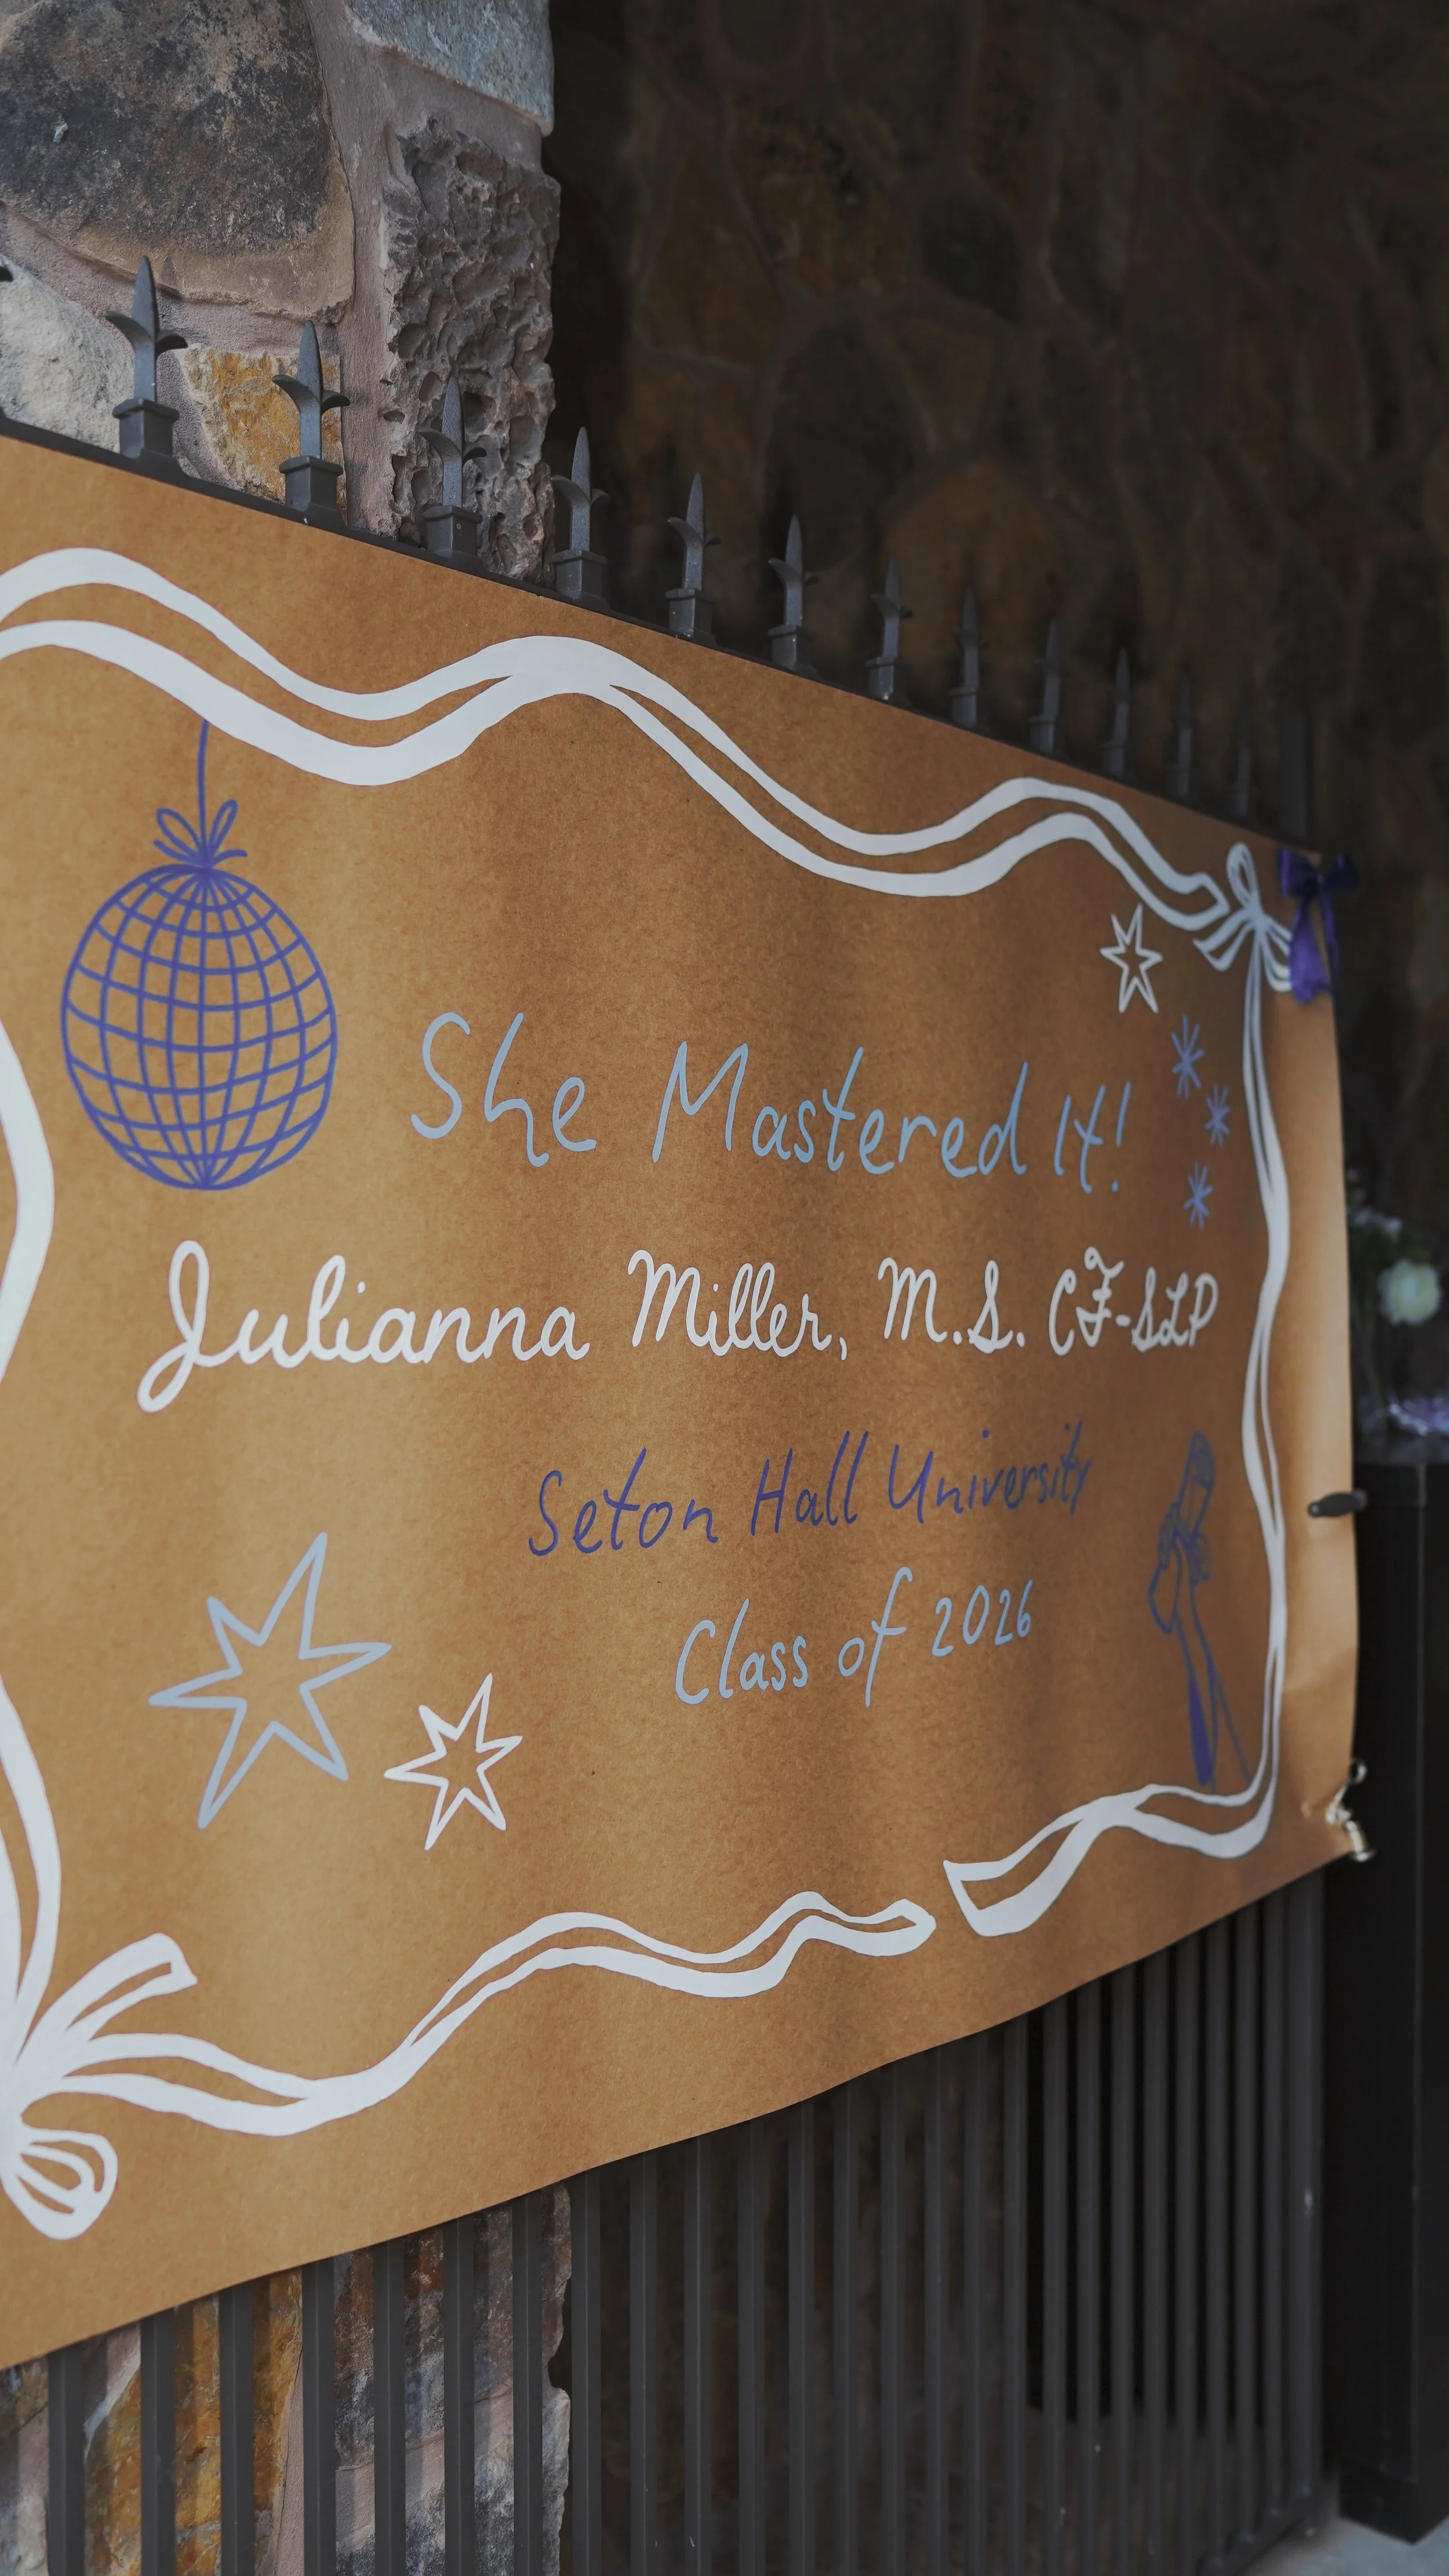 She Mastered It!
Julianna Miller, M.S. CF-SLP
Seton Hall University
Class of 2026